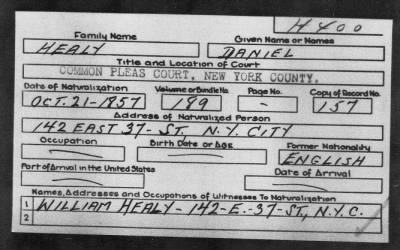 H400
Family Name Given Name or Names
HEALY DANIEL
Title and Location of Court
COMMON PLEAS COURT, NEW YORK COUNTY.
Date of Naturalization Volume or Bundle No. Page No. Copy of Record No.
OCT. 21-1857 189 - 157
Address of Naturalized Person
142 EAST 37- ST, N.Y. CITY
Occupation Birth Date or Age Former Nationality
ENGLISH
Port of Arrival in the United States Date of Arrival
Names, Addresses and Occupations of Witnesses To Naturalization
1 WILLIAM HEALY-142-E.-37-ST, N.Y.C.
2